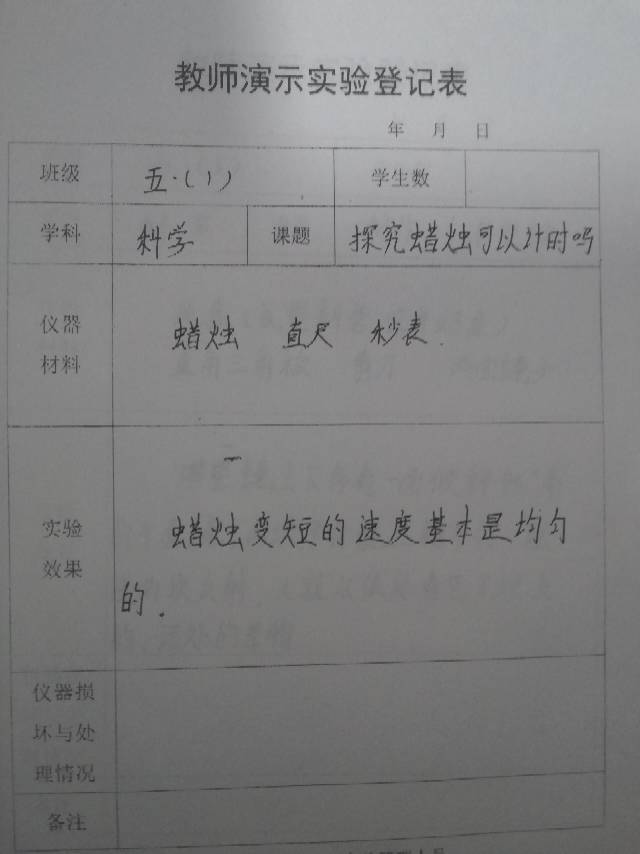 教师演示实验登记表
年 月 日
班级 五.(1) 学生数
学科 科学 课题 探究蜡烛可以计时吗
仪器
材料
蜡烛 直尺 秒表.
实验
效果
蜡烛变短的速度基本是均匀
的.
仪器损
坏与处
理情况
备注